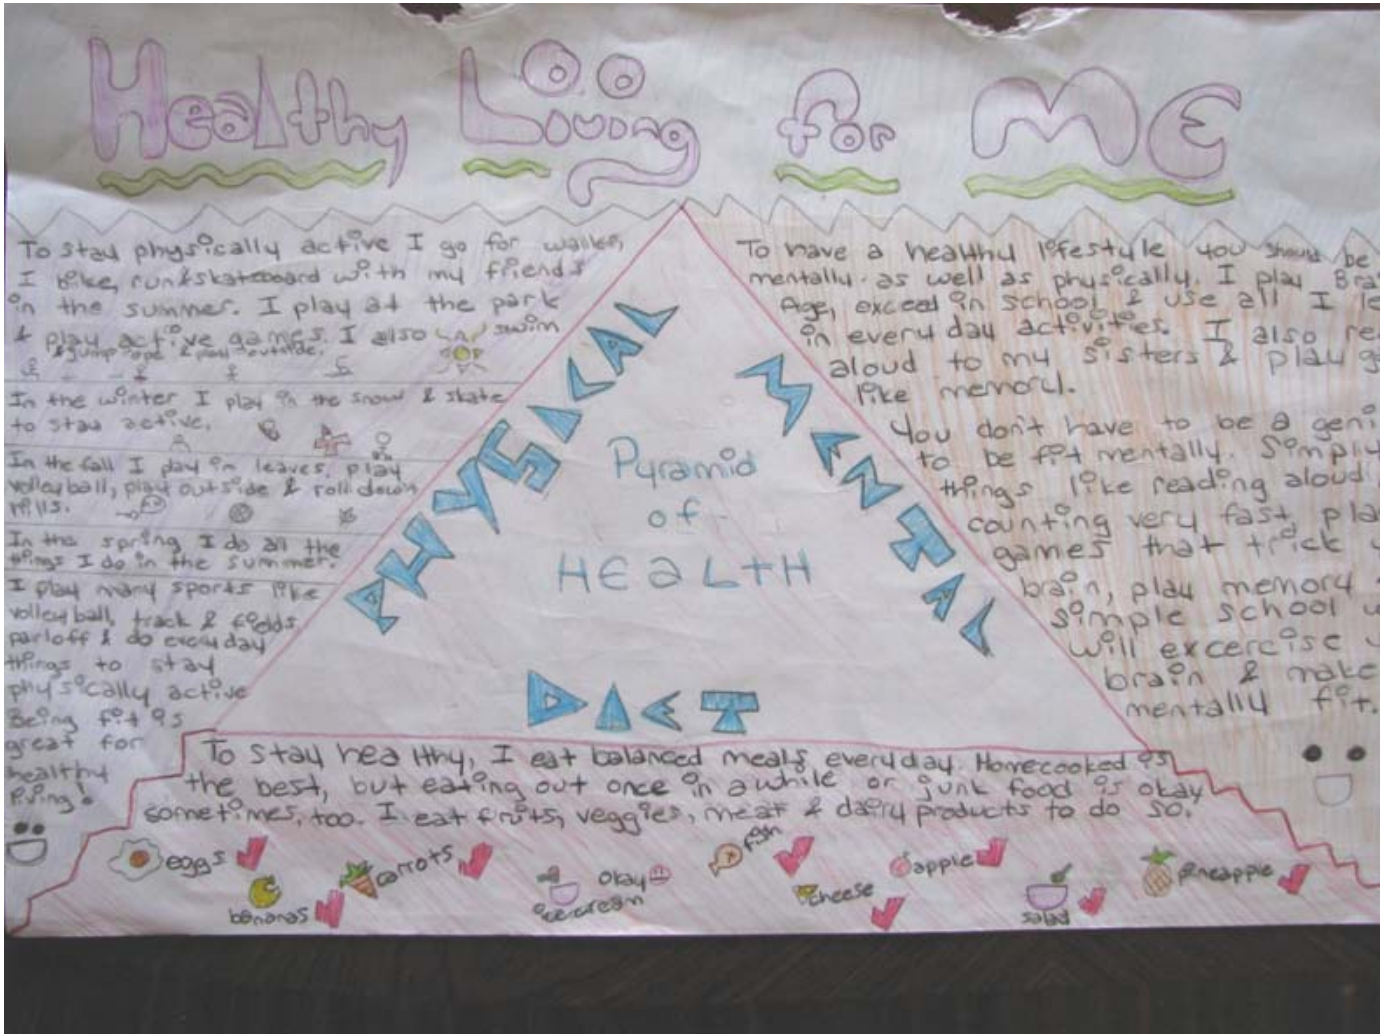 Healthy Living for ME
To stay physically active I go for walks,
I bike, run & skateboard with my friends
in the summer. I play at the park
& play active games. I also swim
& jump rope & play outside.
In the winter I play in the snow & skate
to stay active.
In the fall I play in leaves, play
volleyball, play outside & roll down
hills.
In the spring I do all the
things I do in the summer.
I play many sports like
volleyball, track & fields
& do everyday
things to stay
physically active
Being fit is
great for
healthy
living!
PHYSICAL
Pyramid
of
HEALTH
MENTAL
DIET
To have a healthy lifestyle you should be
mentally as well as physically. I play
Age, exceed in school & use all I
in every day activities. I also
aloud to my sisters & play
like memory.
You don't have to be a
to be fit mentally. Simply
things like reading aloud
counting very fast,
games that trick
brain, play memory
simple school
will excercise
brain & make
mentally fit.
To stay healthy, I eat balanced meals everyday. Homecooked is
the best, but eating out once in a while or junk food is okay
sometimes, too. I eat fruits, veggies, meat & dairy products to do so.
eggs
bananas
carrots
okay
ice cream
fish
cheese
apple
salad
pineapple